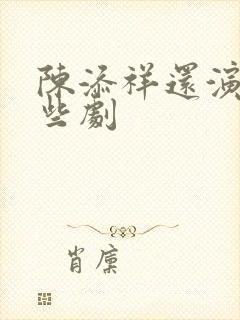 陳添祥還演
些劇
肖廩